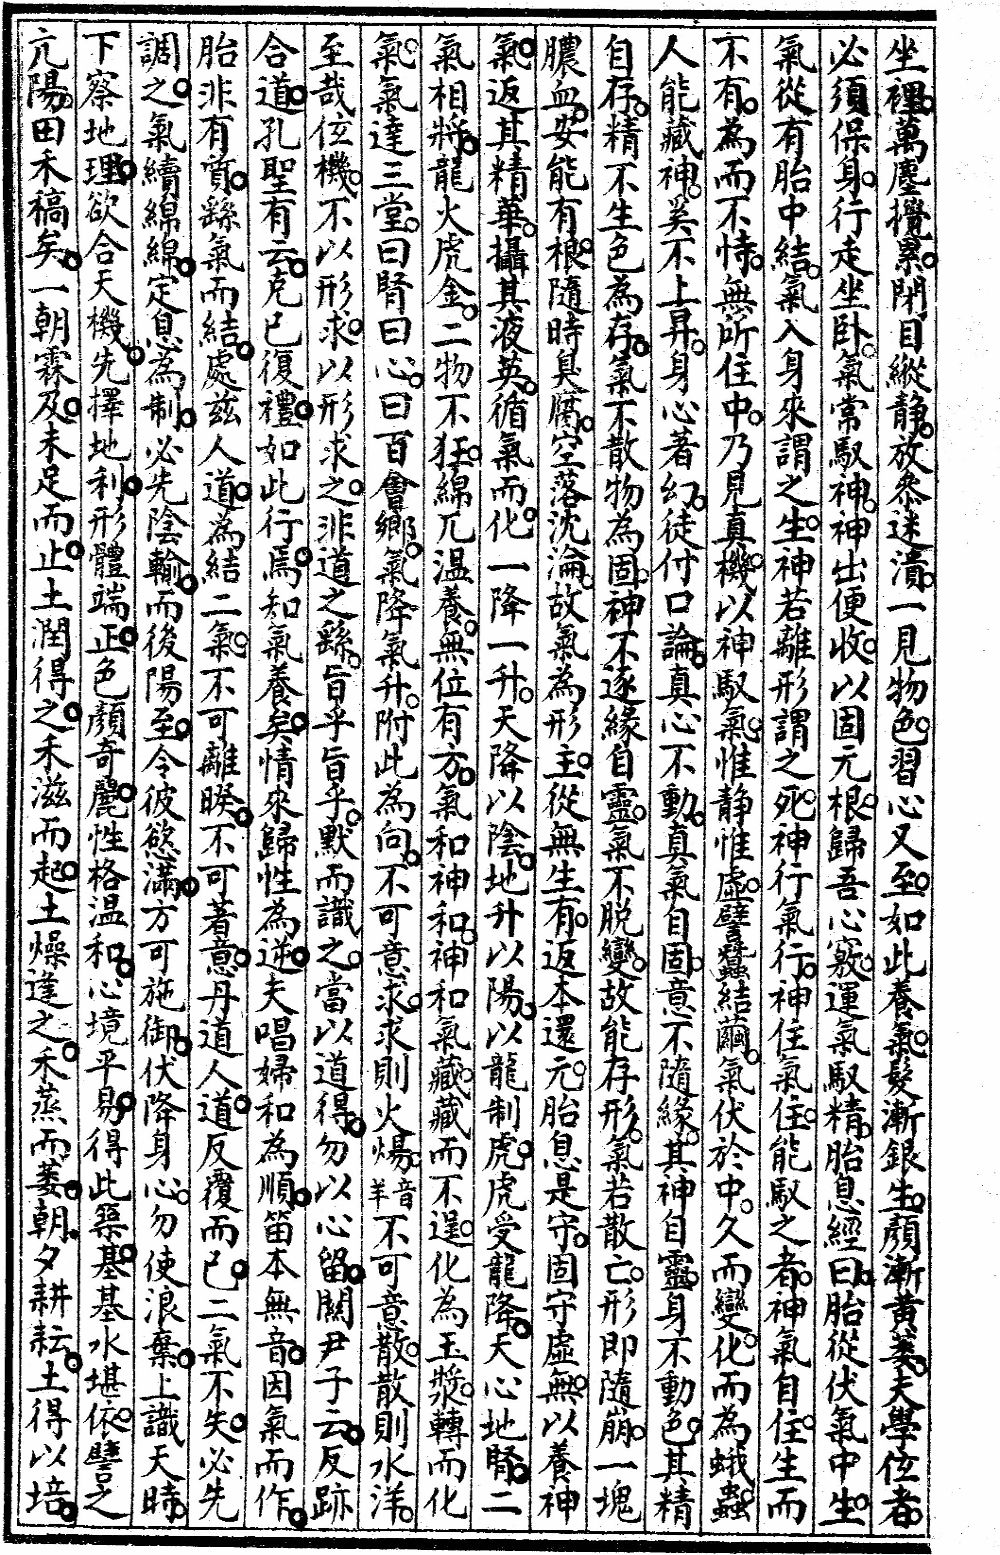 坐裡萬塵攪累閉目縱靜放叅迷漬一見物色習心又至如此養氣髮漸銀生顏漸黃萎夫學位者
必須保身行走坐卧氣常馭神神出便收以固元根歸吾心竅運氣馭精胎息經曰胎從伏氣中生
氣從有胎中結氣入身來謂之生神若離形謂之死神行氣行神住氣住能馭之者神氣自住生而
不有為而不恃無所住中乃見真機以神馭氣惟静惟虛譬蠶結繭氣伏於中久而變化而為蛾蟲
人能藏神奚不上昇身心著幻徒付口論真心不動真氣自固意不隨緣其神自靈身不動色其精
自存精不生色為存氣不散物為固神不逐緣自靈氣不脱變故能存形氣若散亡形即隨崩一塊
膿血安能有根隨時臭腐空落沈淪故氣為形主從無生有返本還元胎息是守固守虛無以養神
氣返其精華攝其液英循氣而化一降一升天降以陰地升以陽以龍制虎虎受龍降天心地腎二
氣相將龍火虎金二物不狂綿兀温養無位有方氣和神和神和氣藏藏而不逞化為玉漿轉而化
氣氣達三堂曰腎曰心曰百會鄉氣降氣升附此為向不可意求求則火煬音羊不可意散散則水洋
至哉位機不以形求以形求之非道之繇旨乎旨乎默而識之當以道得勿以心留關尹子云反跡
合道孔聖有云克已復禮如此行焉知氣養矣情來歸性為逆夫唱婦和為順笛本無音因氣而作
胎非有質繇氣而結處兹人道為結二氣不可離暌不可著意丹道人道反覆而已二氣不失必先
調之氣續綿綿定息為制必先陰輸而後陽至令彼慾滿方可施御伏降身心勿使浪棄上識天時
下察地理欲合天機先擇地利形體端正色顏奇麗性格温和心境平易得此築基基水堪依譬之
亢陽田禾稿矣一朝霖及未足而止土潤得之禾滋而起土燥逢之禾蒸而萎朝夕耕耘土得以培